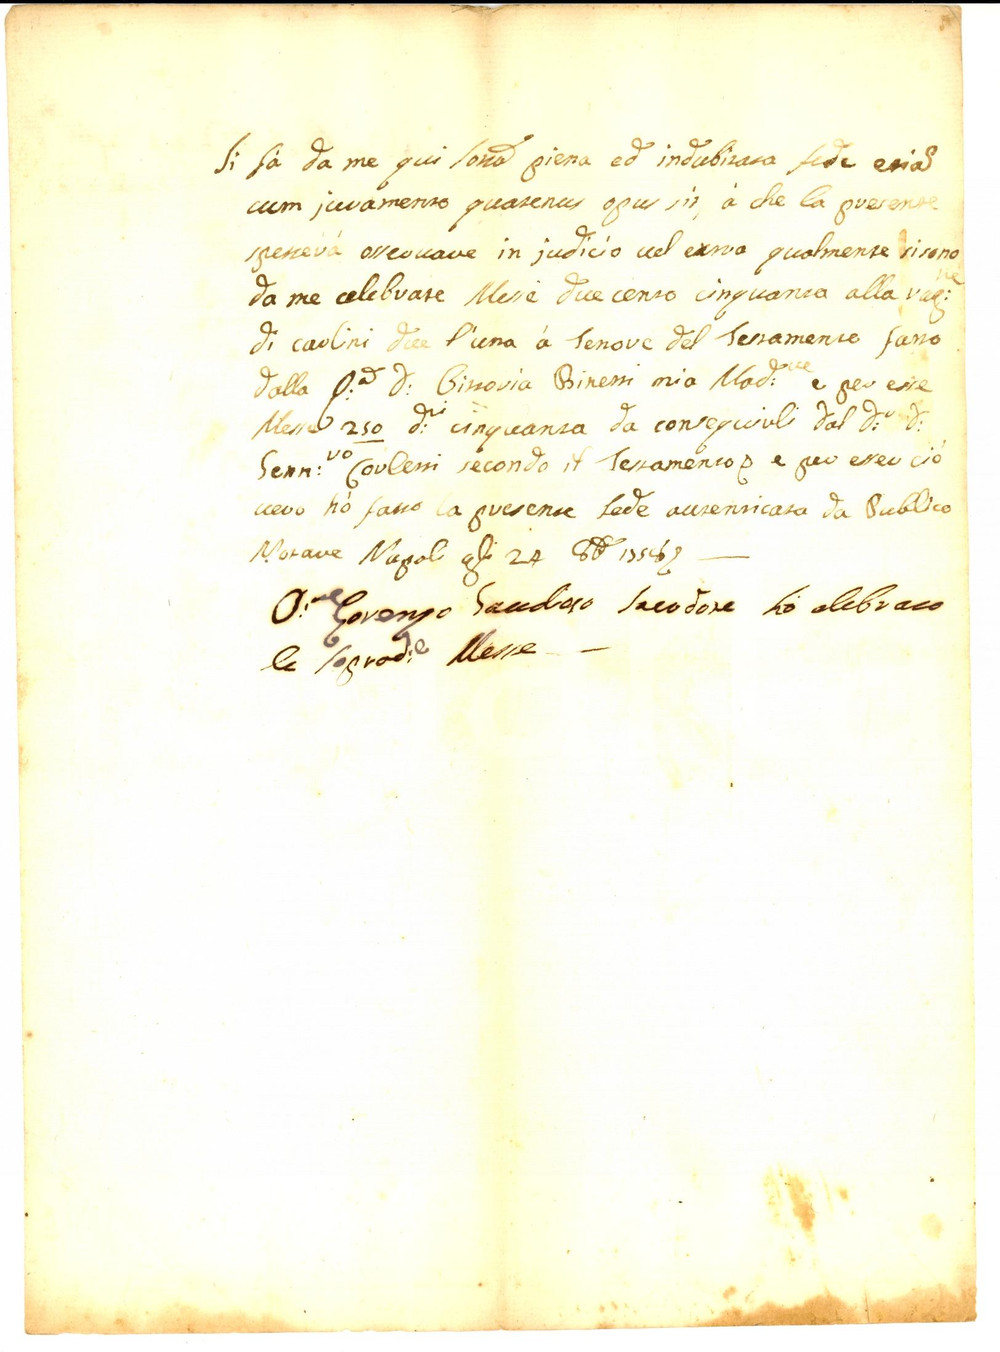 Si fà da me qui sotto piena ed indubitata fede etiam
cum juramento quatenus opus sit, à che la presente
spetterà osservare in judicio vel extra qualmente si sono
da me celebrate Messe duecento cinquanta alla rag:ne
di carlini due l'una à tenore del testamento fatto
dalla q:m D: Vittoria Binetti mia Mad:re e per esse
Messe 250 d:ti cinquanta da conseguirli dal D:r D:
Genn:ro secondo il testamento e per esser ciò
vero hò fatto la presente fede autenticata da Publico
Notare Napoli gli 24
D: Lorenzo Sacerdote hò celebrato
le soprad:e Messe